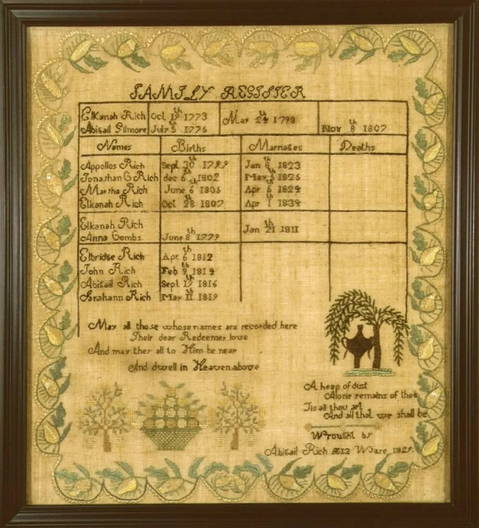 FAMILY REGISTER
Elkanah Rich Oct 19th 1773 May 24th 1798
Abigail Gilmore July 5th 1776 Nov 8th 1807
Names Births Marriages Deaths
Appollos Rich Sept 30th 1799 Jan 1th 1823
Jonathan G Rich dec 6th 1802 May 3th 1826
Martha Rich June 6 1805 Apr 6th 1824
Elkanah Rich Oct 28th 1807 Apr 1th 1834
Elkanah Rich Jan 21th 1811
Anna Combs June 8th 1779
Elbridge Rich Apr 6th 1812
John Rich Feb 9th 1814
Abigail Rich Sept 17th 1816
Rich May 11th 1819
May all those whose names are recorded here
Their dear Redeemer love
And may they all to Him be near
And dwell in Heaven above
A heap of dust
Alone remains of thee
Tis all thou art
And all that we shall be
Wrought by
Abigail Rich Æ12 Ware 1829.